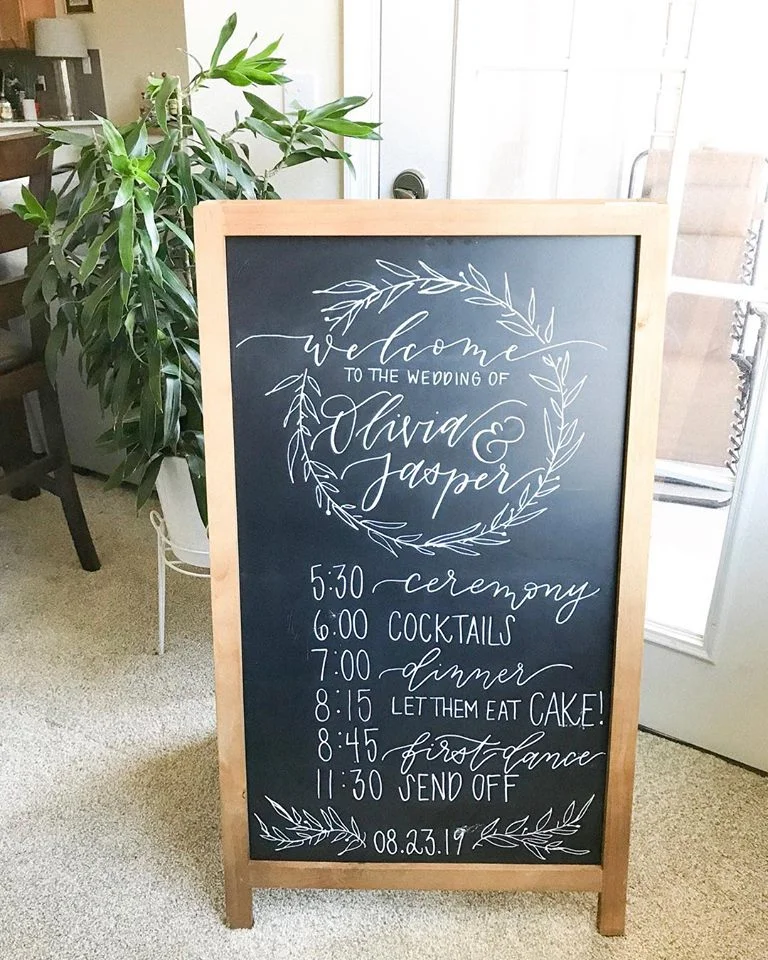 welcome
TO THE WEDDING OF
Olivia &
Jasper
5:30 ceremony
6:00 COCKTAILS
7:00 dinner
8:15 LET THEM EAT CAKE!
8:45 first dance
11:30 SEND OFF
08.23.19